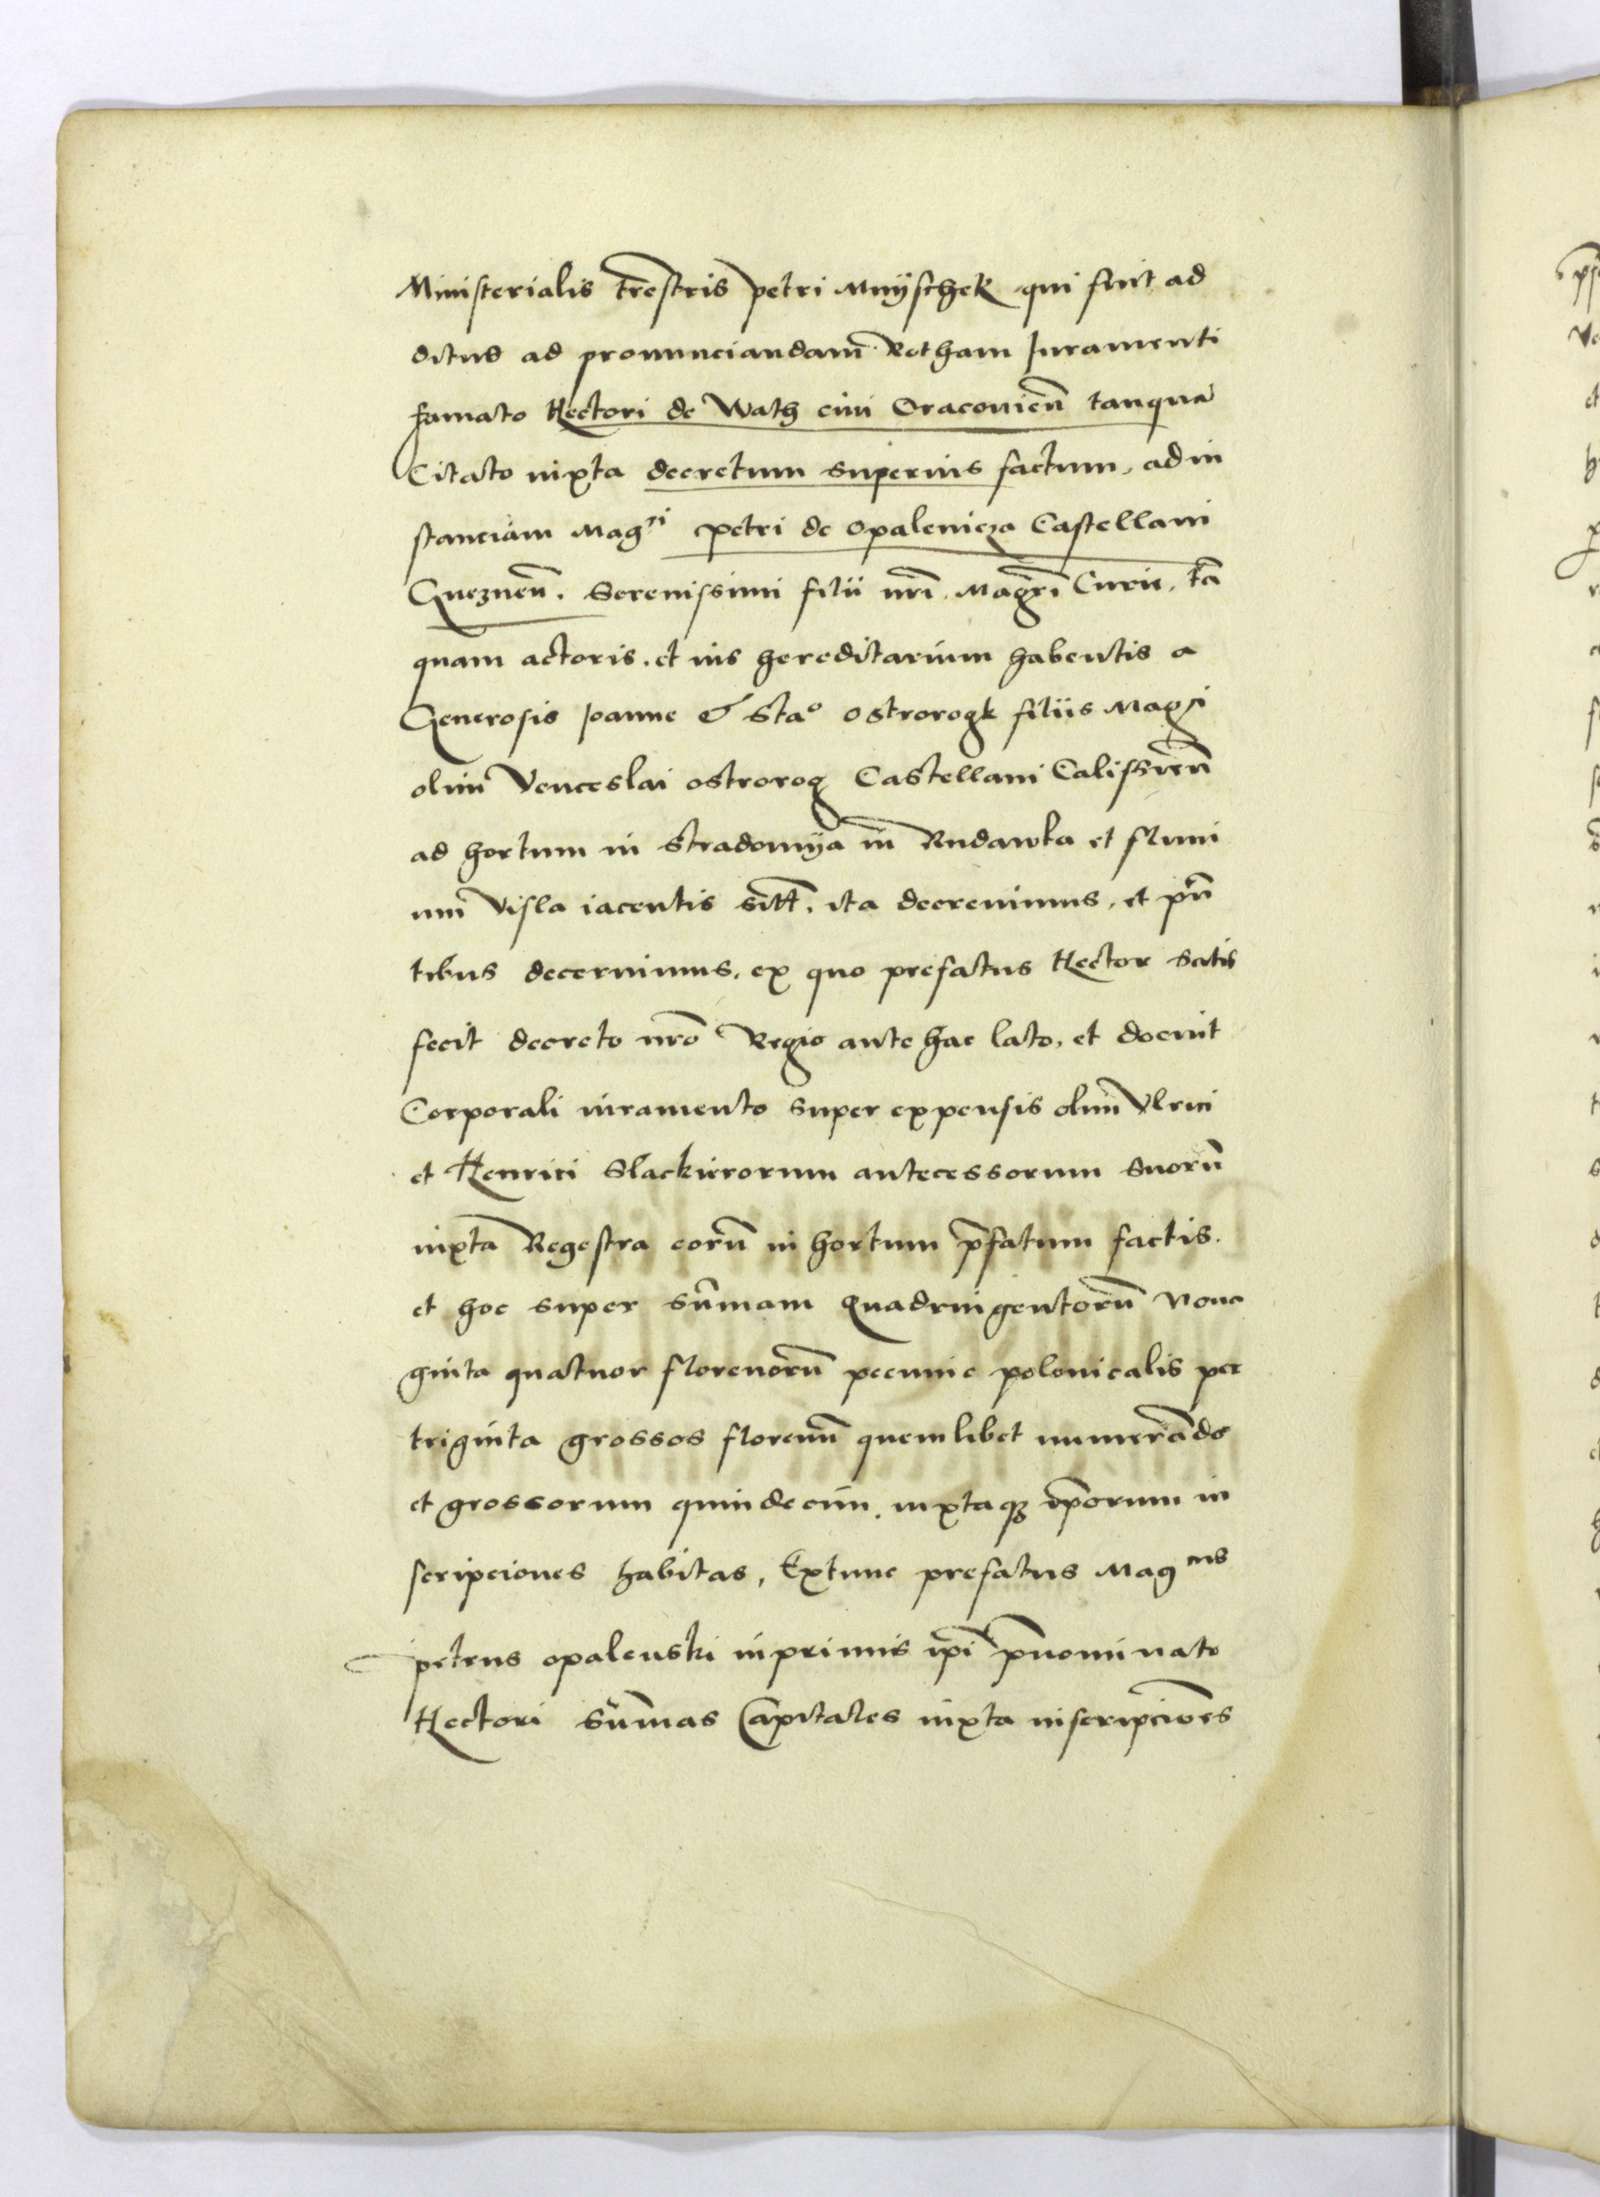 Ministerialis tr̄estris petri Mnÿschek qui fuit ad
ditus ad pronunciandam Rotham Juramenti
famato Hectori de Wath civi Cracovieñ tanquā
Citato iuxta decretum superius factum, ad in
stanciam Mag^ci petri de Opalenicza Castellani
Gnezneñ. Serenissimi filii nr̄i Magr̄i Curie, tā
quam actoris. et ius hereditarium habentis a
Generosis Joanne & Sta^o Ostrorogk filiis Magci
olim Venceslai ostrorog Castellani Calissieñ
ad hortum in Stradomÿa in Rudawka et fluvi
um Visla iacentis sitt̄. ita decrevimus, et pñ
tibus decernimus, ex quo prefatus Hector satis
fecit decreto nr̄o Regio ante hac lato, et docuit
Corporali iuramento super expensis olim Vlrici
et Henrici Slackirorum antecessorum suorū
iuxta Regestra eorū in hortum p̄fatum factis.
et hoc super sūmam Quadringentorū Nona
ginta quatuor florenorū pecunie polonicalis per
triginta grossos florenū quemlibet numerādo
et grossorum quindecim. iuxtaq3 ip̄orum in
scripciones habitas, Extunc prefatus Mag^cus
petrus opalenski inprimis ip̄i p̄nominato
Hectori sūmas Capitales iuxta inscripciōes